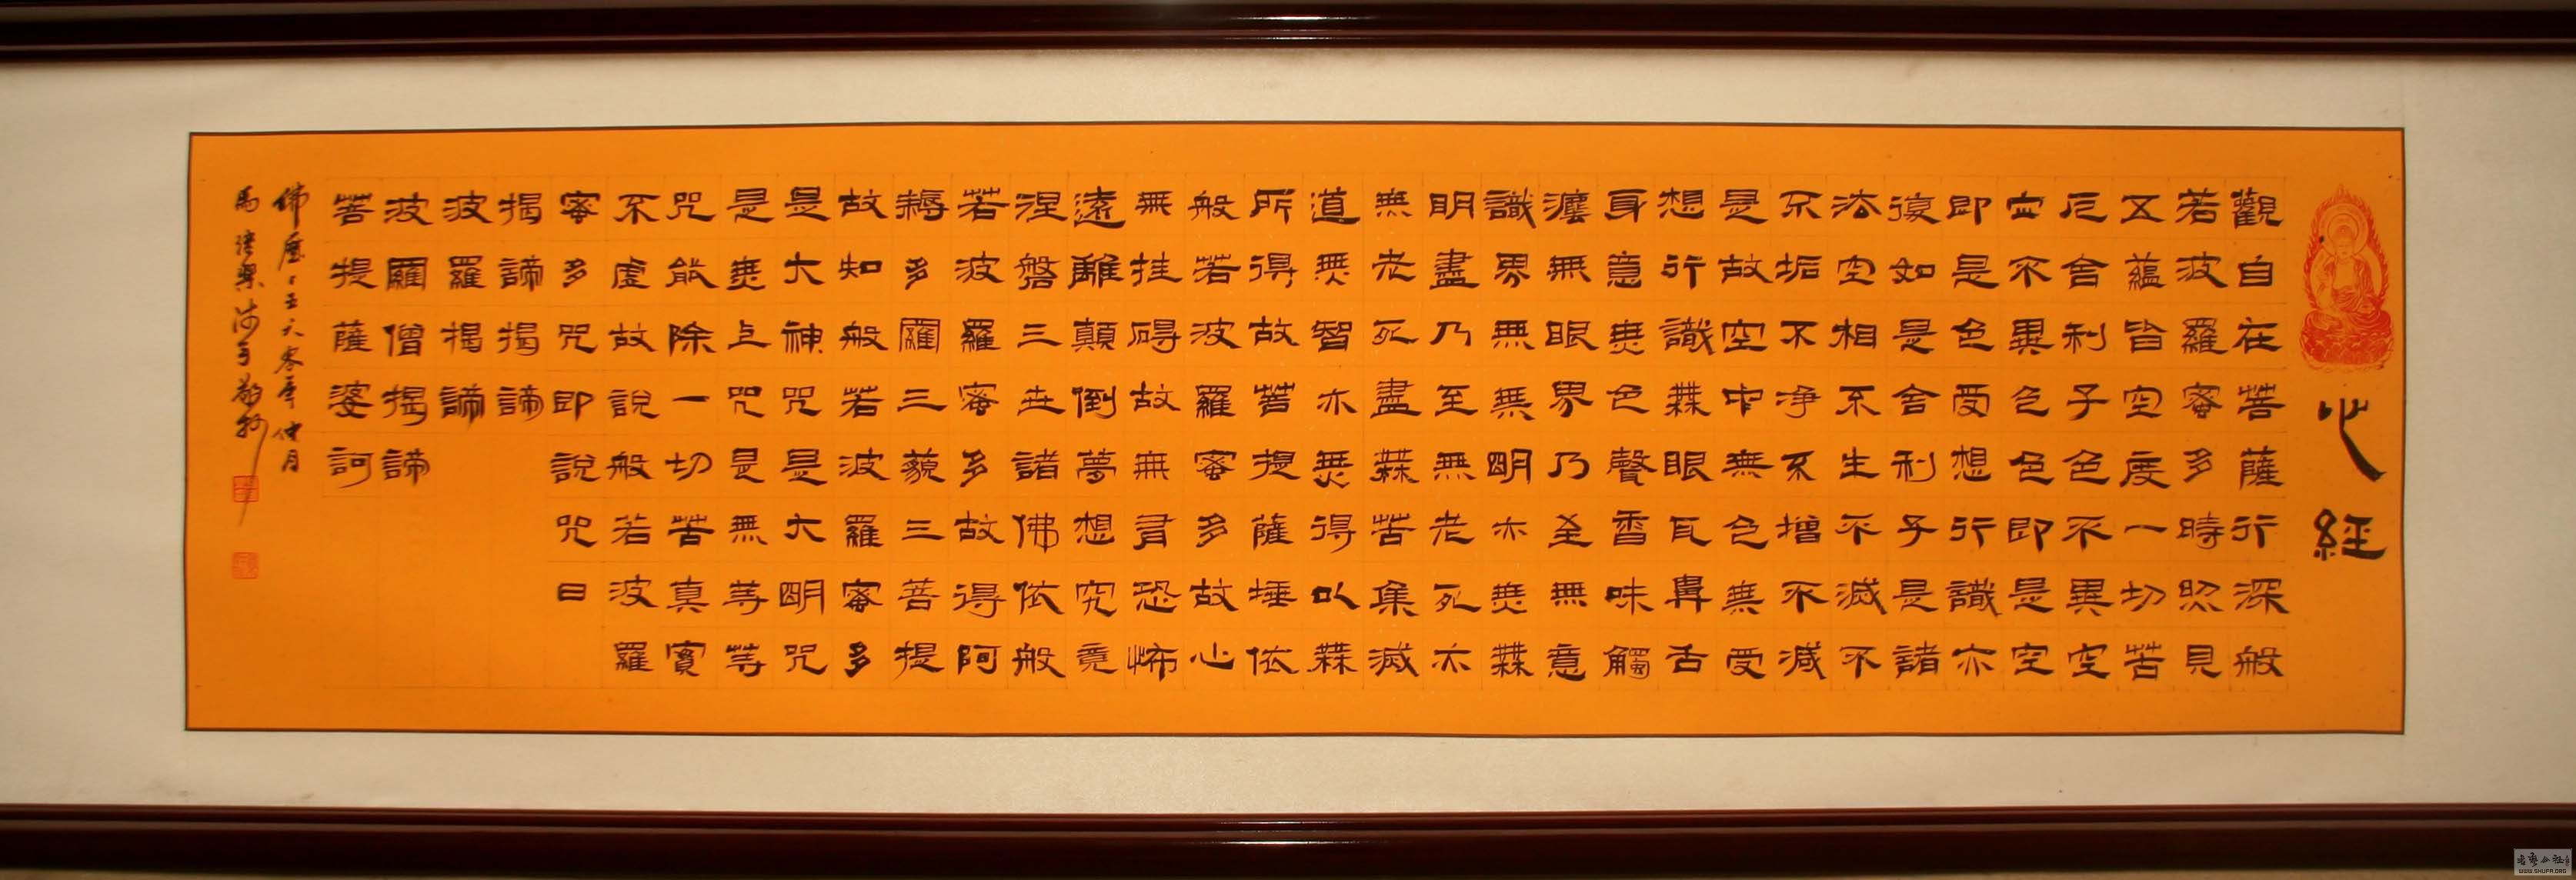 心經
觀自在菩薩行深般
若波羅蜜多時照見
五蘊皆空度一切苦
厄舍利子色不異空
空不異色色即是空
即是色受想行識亦
復如是舍利子是諸
法空相不生不滅不
不垢不净不增不減
是故空中無色無受
想行識無眼耳鼻舌
身意無色聲香味觸
灋無眼界乃至無意
識界無無明亦無無
明盡乃至無老死亦
無老死盡無苦集滅
道無智亦無得以無
所得故菩提薩埵依
般若波羅蜜多故心
無挂碍故無有恐怖
遠離顛倒夢想究竟
涅槃三世諸佛依般
若波羅蜜多故得阿
耨多羅三藐三菩提
故知般若波羅蜜多
是大神咒是大明咒
是無上咒是無等等
咒能除一切苦真實
不虛故說般若波羅
蜜多咒即說咒曰
揭諦揭諦
波羅揭諦
波羅僧揭諦
菩提薩婆訶
佛曆二五六零年仲月
馬
WWW.SHUFA.ORG